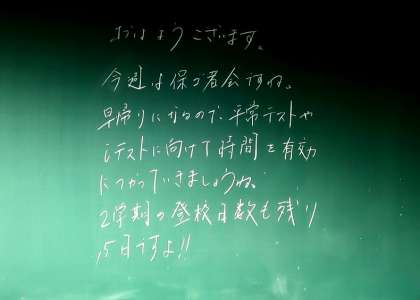 おはようございます。
今週は保ゴ者会ですね。
早帰りになるので、平常テストや
iテストに向けて時間を有効
につかっていきましょうね。
2学期の登校日数も残り
15日ですよ!!